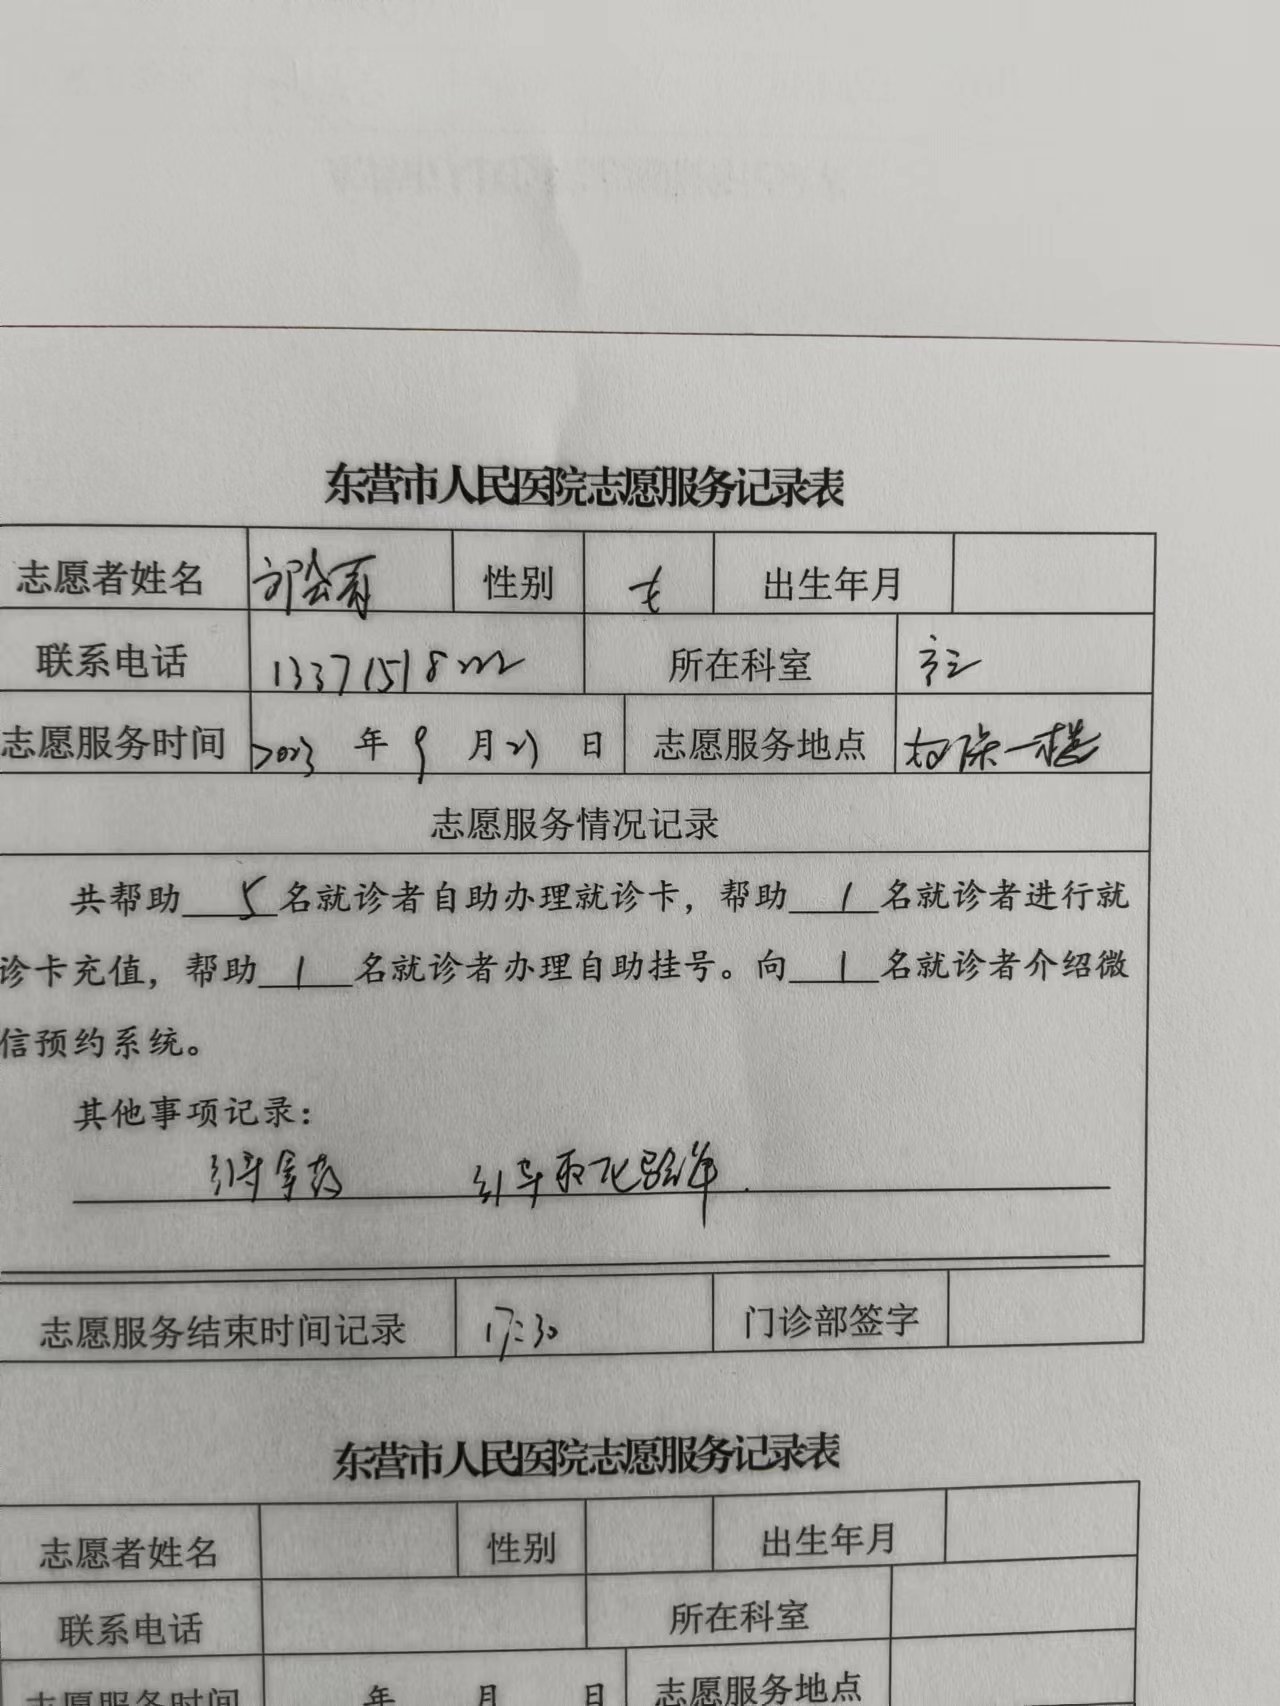 东营市人民医院志愿服务记录表
志愿者姓名 性别 女 出生年月
联系电话 13371518222 所在科室
志愿服务时间 2023年9月21日 志愿服务地点 一楼
志愿服务情况记录
共帮助5名就诊者自助办理就诊卡，帮助1名就诊者进行就
诊卡充值，帮助1名就诊者办理自助挂号。向1名就诊者介绍微
信预约系统。
其他事项记录：
引导拿药 引导取化验单.
志愿服务结束时间记录 17:30 门诊部签字
东营市人民医院志愿服务记录表
志愿者姓名 性别 出生年月
联系电话 所在科室
志愿服务时间 年 月 日 志愿服务地点